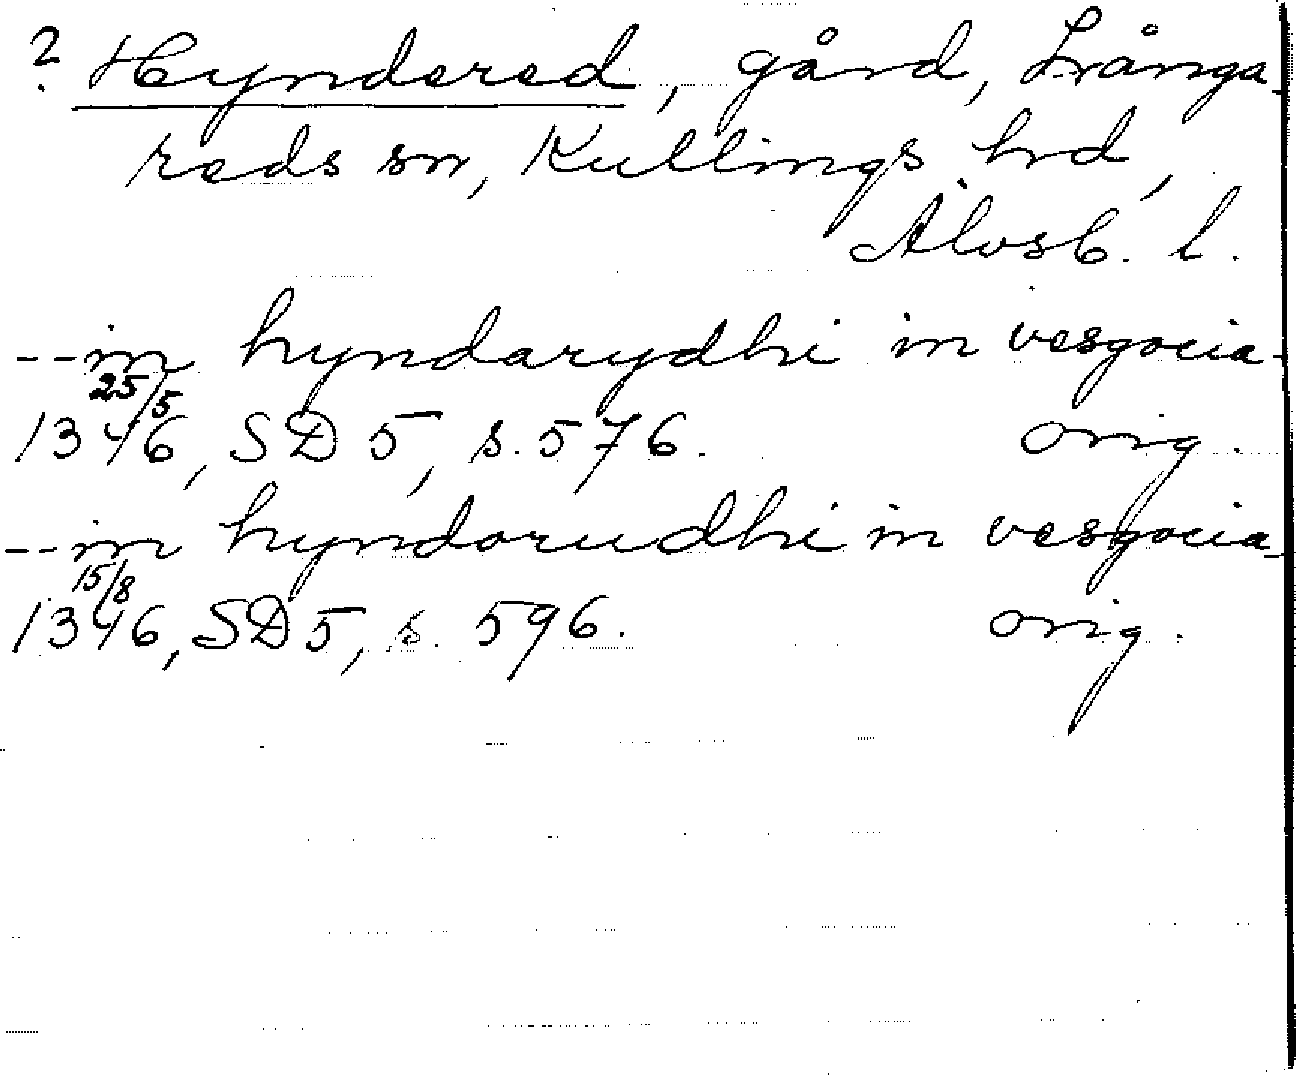 ? Hyndered, gård, Långa-
reds sn, Kullings hd,
Älvsb. l.
--in hyndarydhi in vesgocia-
25/5
1346, SD 5, s. 576. orig.
--in hyndorudhi in vesgocia-
15/8
1346, SD 5, s. 596. orig.